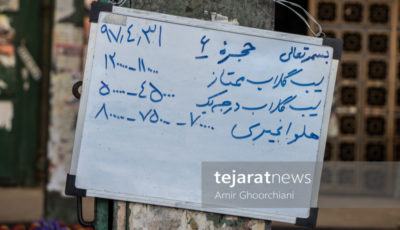 بسمه تعالی حجره ۶ ۹۷،۴،۳۱
سیب گلاب ممتاز ۱۱۰۰۰-۱۲۰۰۰
سیب گلاب درجه یک ۴۵۰۰-۵۰۰۰
هلو انجیری ۷۰۰۰-۷۵۰۰-۸۰۰۰
tejaratnews
Amir Ghoorchiani